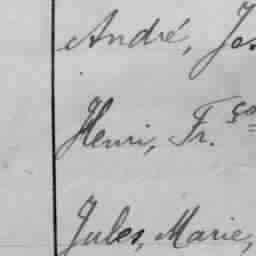 André, Jo
Henri, Fr. ço
Jules, Marie,